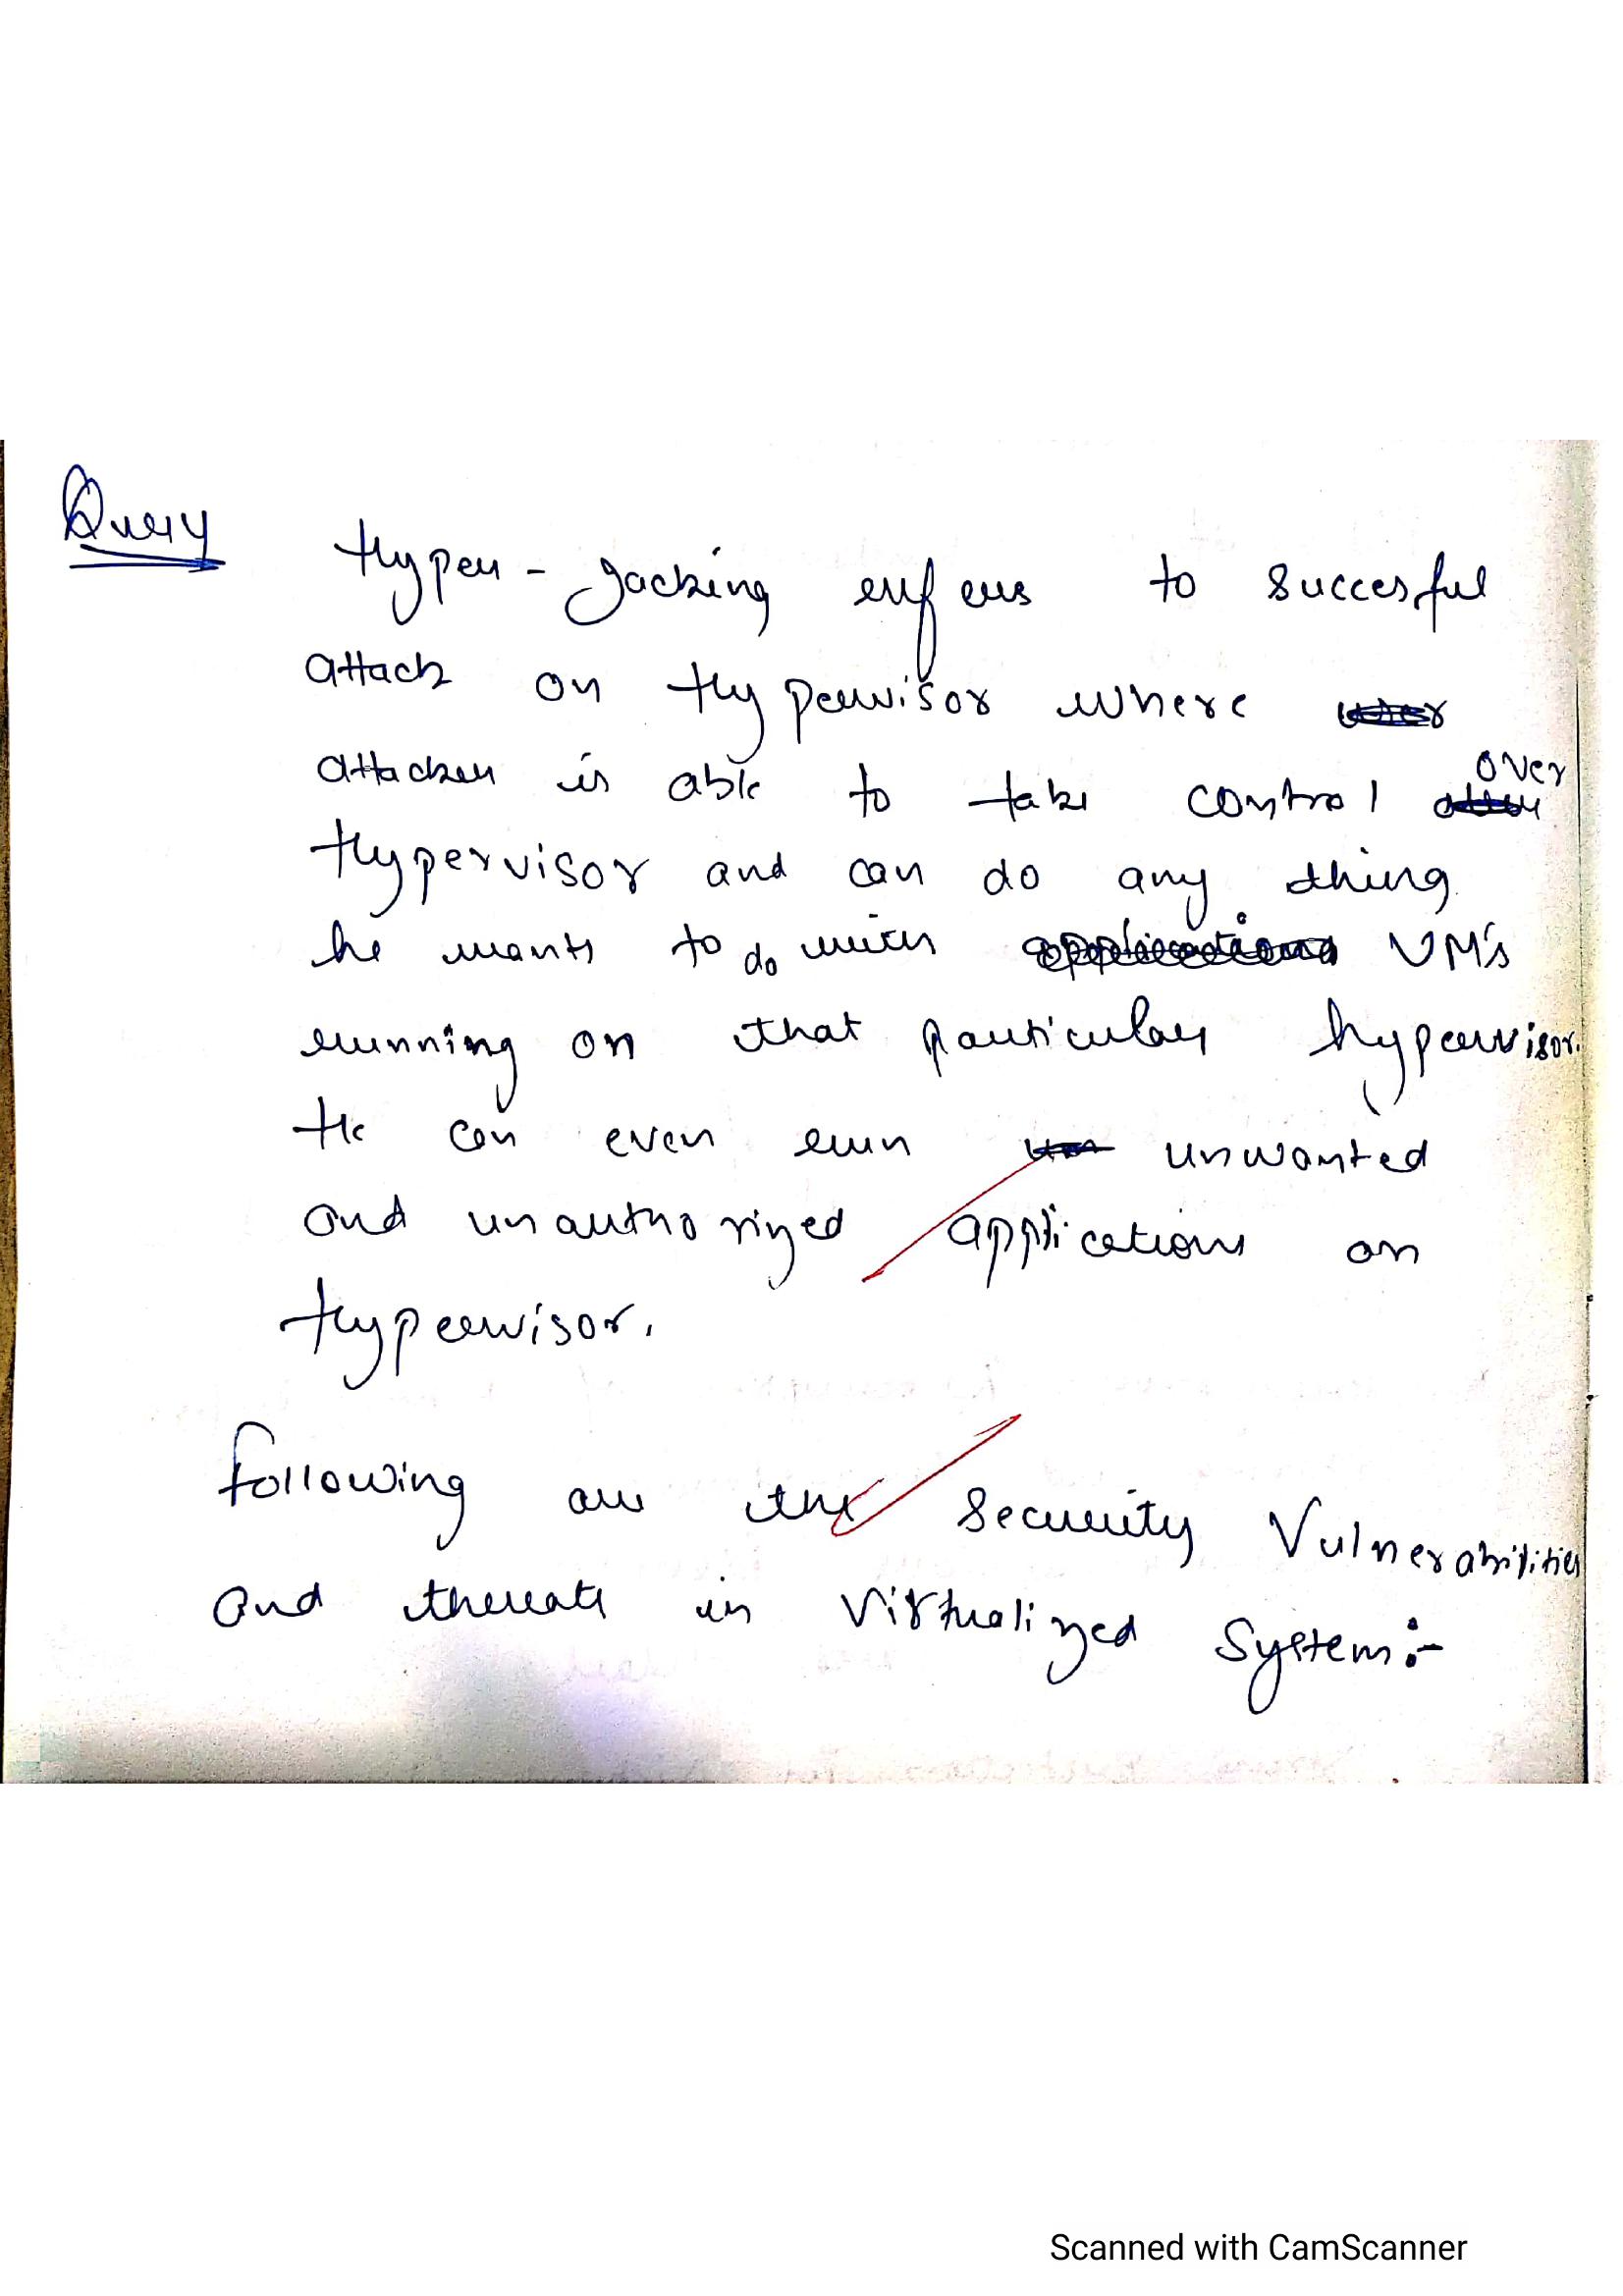 Query
Hyper - Jacking refers to succesful
attack on Hypervisor where
attacker is able to take control over
Hypervisor and can do any thing
he wants to do with VM's
running on that particular hypervisor.
He can even run unwanted
and unauthorized applications on
Hypervisor.
following are the Security Vulnerabilities
and threats in Virtualized System:-
Scanned with CamScanner